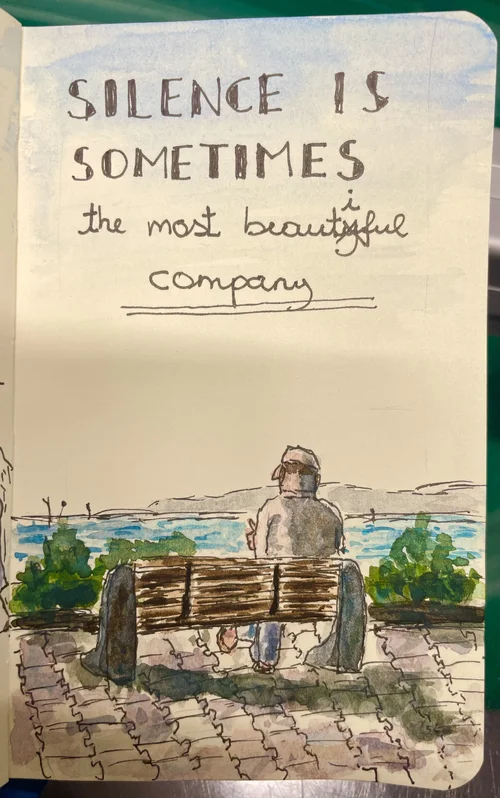 SILENCE IS
SOMETIMES
the most beautiful
company